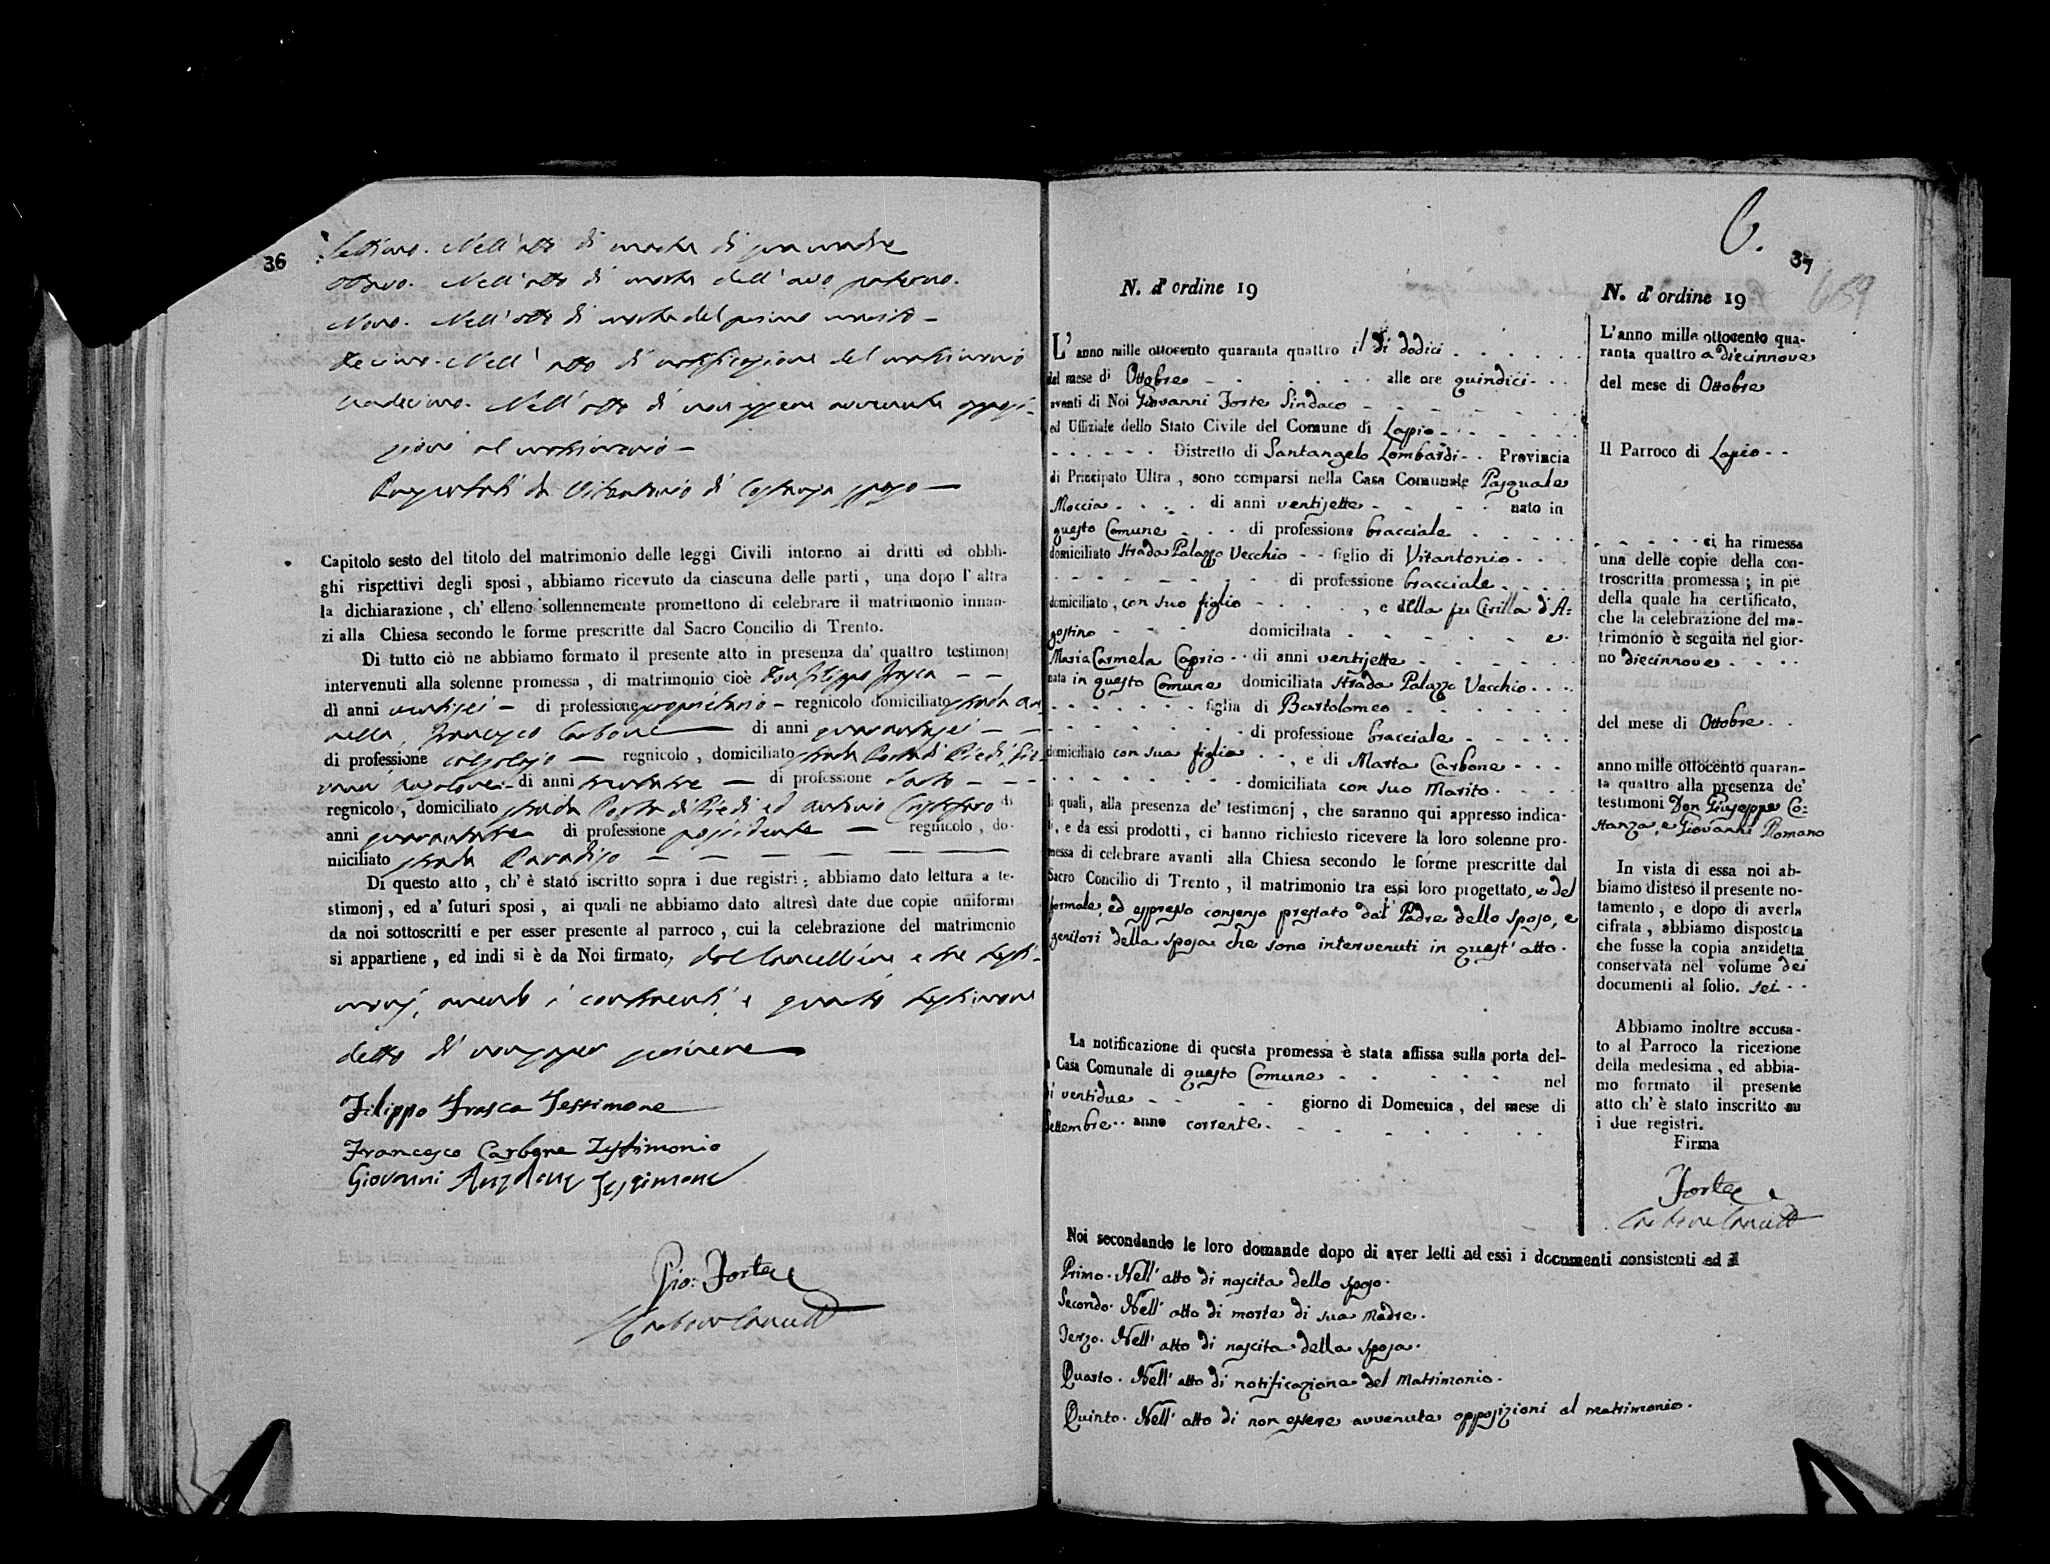 36
Settimo. Nell'atto di morte di sua madre
Ottavo. Nell'atto di morte dell'avo paterno.
Nono. Nell'atto di morte del primo marito –
Decimo. Nell'atto di notificazione del matrimonio
Undecimo. Nell'atto di non essere avvenute opposi-
zioni al matrimonio –
Presentati da Vitantonio di sposo –
Capitolo sesto del titolo del matrimonio delle leggi Civili intorno ai dritti ed obbli-
ghi rispettivi degli sposi, abbiamo ricevuto da ciascuna delle parti, una dopo l'altra
la dichiarazione, ch'elleno sollennemente promettono di celebrare il matrimonio innan-
zi alla Chiesa secondo le forme prescritte dal Sacro Concilio di Trento.
Di tutto ciò ne abbiamo formato il presente atto in presenza da' quattro testimonj
intervenuti alla solenne promessa, di matrimonio cioè Filippo Frasca – –
di anni ventisei – di professione proprietario – regnicolo domiciliato strada
Francesco Carbone – di anni quarantasei – –
di professione calzolajo – regnicolo, domiciliato strada Porta di Piedi, Gio-
vanni Anzalone di anni – di professione Sarto – – –
regnicolo, domiciliato strada Porta di Piedi ed Antonio di
anni quarantatre di professione possidente – regnicolo, do-
miciliato strada Paradiso – – – – –
Di questo atto, ch'è stato iscritto sopra i due registri; abbiamo dato lettura a te-
stimonj, ed a' futuri sposi, ai quali ne abbiamo dato altresì date due copie uniformi
da noi sottoscritti e per esser presente al parroco, cui la celebrazione del matrimonio
si appartiene, ed indi si è da Noi firmato, dal Cancelliere e tre testi-
monj, avendo i contraenti, e quarto testimone
detto di non saper scrivere
Filippo Frasca Testimone
Francesco Carbone Testimonio
Giovanni Anzalone Testimone
Gio: Forte
Carbone Cancell
6.
37
659
N. d'ordine 19
L'anno mille ottocento quaranta quattro il di dodici
del mese di Ottobre alle ore quindici
avanti di Noi Giovanni Forte Sindaco
ed Uffiziale dello Stato Civile del Comune di Lapio
Distretto di Santangelo Lombardi Provincia
di Principato Ultra, sono comparsi nella Casa Comunale Pasquale
Moccia di anni ventisette nato in
questo Comune di professione bracciale
domiciliato Strada Palazzo Vecchio figlio di Vitantonio
di professione bracciale
domiciliato, con suo figlio, e della fu Cirilla d'A=
gostino domiciliata e
Maria Carmela Caprio di anni ventisette
nata in questo Comune domiciliata Strada Palazzo Vecchio
figlia di Bartolomeo
di professione bracciale
domiciliato con sua figlia, e di Marta Carbone
domiciliata con suo Marito
i quali, alla presenza de' testimonj, che saranno qui appresso indica-
ti, e da essi prodotti, ci hanno richiesto ricevere la loro solenne pro-
messa di celebrare avanti alla Chiesa secondo le forme prescritte dal
Sacro Concilio di Trento, il matrimonio tra essi loro progettato, e del
formale, ed espresso consenso prestato dal Padre dello sposo, e
genitori della sposa che sono intervenuti in quest'atto.
La notificazione di questa promessa è stata affissa sulla porta del-
a Casa Comunale di questo Comune nel
di ventidue giorno di Domenica, del mese di
Settembre anno corrente.
N. d'ordine 19
L'anno mille ottocento qua-
ranta quattro a diecinnove
del mese di Ottobre
Il Parroco di Lapio
ci ha rimessa
una delle copie della con-
troscritta promessa; in piè
della quale ha certificato,
che la celebrazione del ma-
trimonio è seguita nel gior-
no diecinnove
del mese di Ottobre
anno mille ottocento quaran-
ta quattro alla presenza de'
testimoni Don Giuseppe Co-
stanza, e Giovanni Romano
In vista di essa noi ab-
biamo disteso il presente no-
tamento, e dopo di averla
cifrata, abbiamo disposto
che fusse la copia anzidetta
conservata nel volume dei
documenti al folio. sei
Abbiamo inoltre accusa-
to al Parroco la ricezione
della medesima, ed abbia-
mo formato il presente
atto ch'è stato inscritto su
i due registri.
Firma
Forte
Carbone Cancell
Noi secondando le loro domande dopo di aver letti ad essi i documenti consistenti ed
Primo. Nell'atto di nascita dello sposo.
Secondo. Nell'atto di morte di sua Madre.
Terzo. Nell'atto di nascita della sposa.
Quarto. Nell'atto di notificazione del Matrimonio.
Quinto. Nell'atto di non essere avvenute opposizioni al matrimonio.